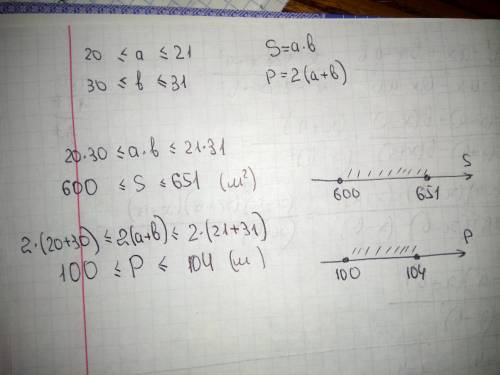 20 ≤ a ≤ 21
S=a·в
30 ≤ в ≤ 31
P=2(a+в)
20·30 ≤ a·в ≤ 21·31
600 ≤ S ≤ 651 (м²)
S
600 651
2·(20+30) ≤ 2(a+в) ≤ 2·(21+31)
100 ≤ P ≤ 104 (м)
P
100 104